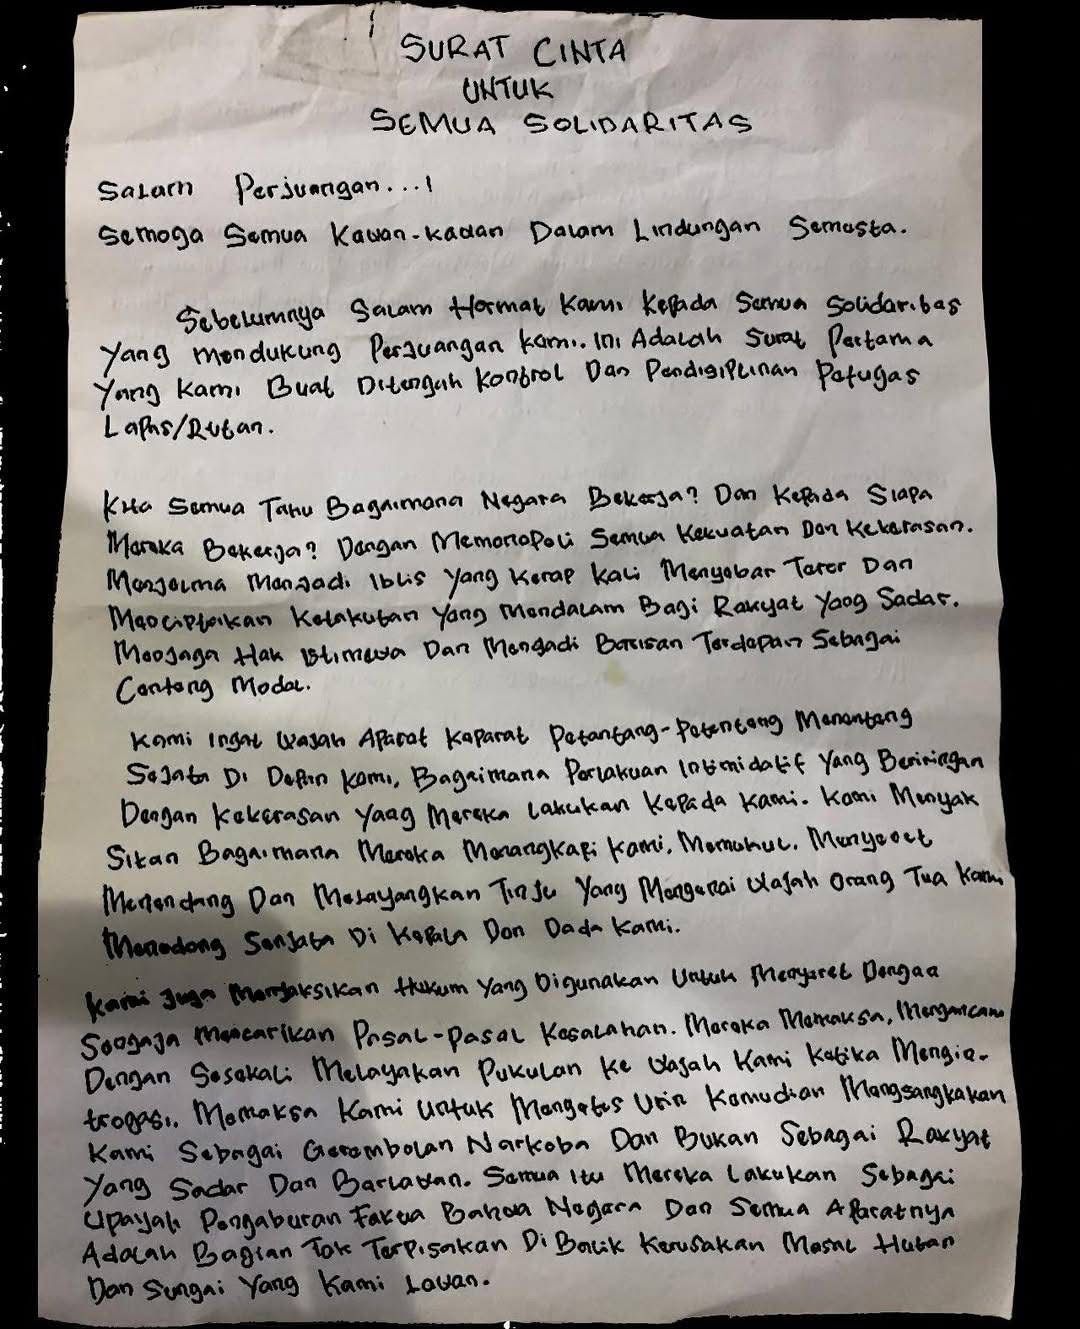 SURAT CINTA
UNTUK
SEMUA SOLIDARITAS
Salam Perjuangan...!
Semoga Semua Kawan-kawan Dalam Lindungan Semesta.
Sebelumnya Salam Hormat Kami Kepada Semua Solidaritas
Yang Mendukung Perjuangan kami.. Ini Adalah Surat Pertama
Yang Kami Buat Ditengah Kontrol Dan Pendisiplinan Petugas
Lapas/Rutan.
Kita Semua Tahu Bagaimana Negara Bekerja? Dan Kepada Siapa
Mereka Bekerja? Dengan Memonopoli Semua Kekuatan Dan Kekerasan.
Menjelma Menjadi Iblis Yang Kerap Kali Menyebar Teror Dan
Menciptakan Ketakutan Yang Mendalam Bagi Rakyat Yang Sadar.
Menjaga Hak Istimewa Dan Mengadi Barisan Terdepan Sebagai
Centeng Modal.
Kami Ingat Wajah Aparat Keparat Petantang-Petenteng Menenteng
Sejata Di Depan Kami, Bagaimana Perlakuan Intimidatif Yang Beriringan
Dengan Kekerasan Yang Mereka Lakukan Kepada Kami. Kami Menyak
Sikan Bagaimana Mereka Menangkapi Kami, Memukul, Menyeret
Menendang Dan Melayangkan Tinju Yang Mengenai Wajah Orang Tua Kami
Menodong Senjata Di Kepala Dan Dada Kami.
Kami Juga Menyaksikan Hukum Yang Digunakan Untuk Menyeret Dengan
Sengaja Mencarikan Pasal-Pasal Kesalahan. Mereka Memaksa, Mengancam
Dengan Sesekali Melayakan Pukulan Ke Wajah Kami Ketika Mengin-
trogasi, Memaksa Kami Untuk Mengetes Urin Kemudian Mengsangkakan
Kami Sebagai Gerombolan Narkoba Dan Bukan Sebagai Rakyat
Yang Sadar Dan Berlawan. Semua Itu Mereka Lakukan Sebagai
Upayah Pengaburan Fakta Bahwa Negara Dan Semua Aparatnya
Adalah Bagian Tak Terpisakan Di Balik Kerusakan Masal Hutan
Dan Sungai Yang Kami Lawan.